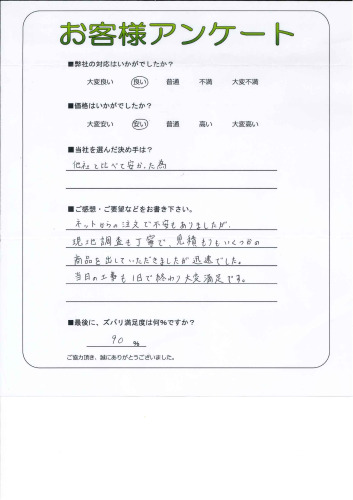 お客様アンケート
■弊社の対応はいかがでしたか?
大変良い 良い 普通 不満 大変不満
■価格はいかがでしたか?
大変安い 安い 普通 高い 大変高い
■当社を選んだ決め手は?
他社と比べて安かった為
■ご感想・ご要望などをお書き下さい。
ネットからの注文で不安もありましたが、
現地調査も丁寧で、見積もりもいくつかの
商品を出していただきましたが迅速でした。
当日の工事も1日で終わり大変満足です。
■最後に、ズバリ満足度は何%ですか?
90 %
ご協力頂き、誠にありがとうございました。